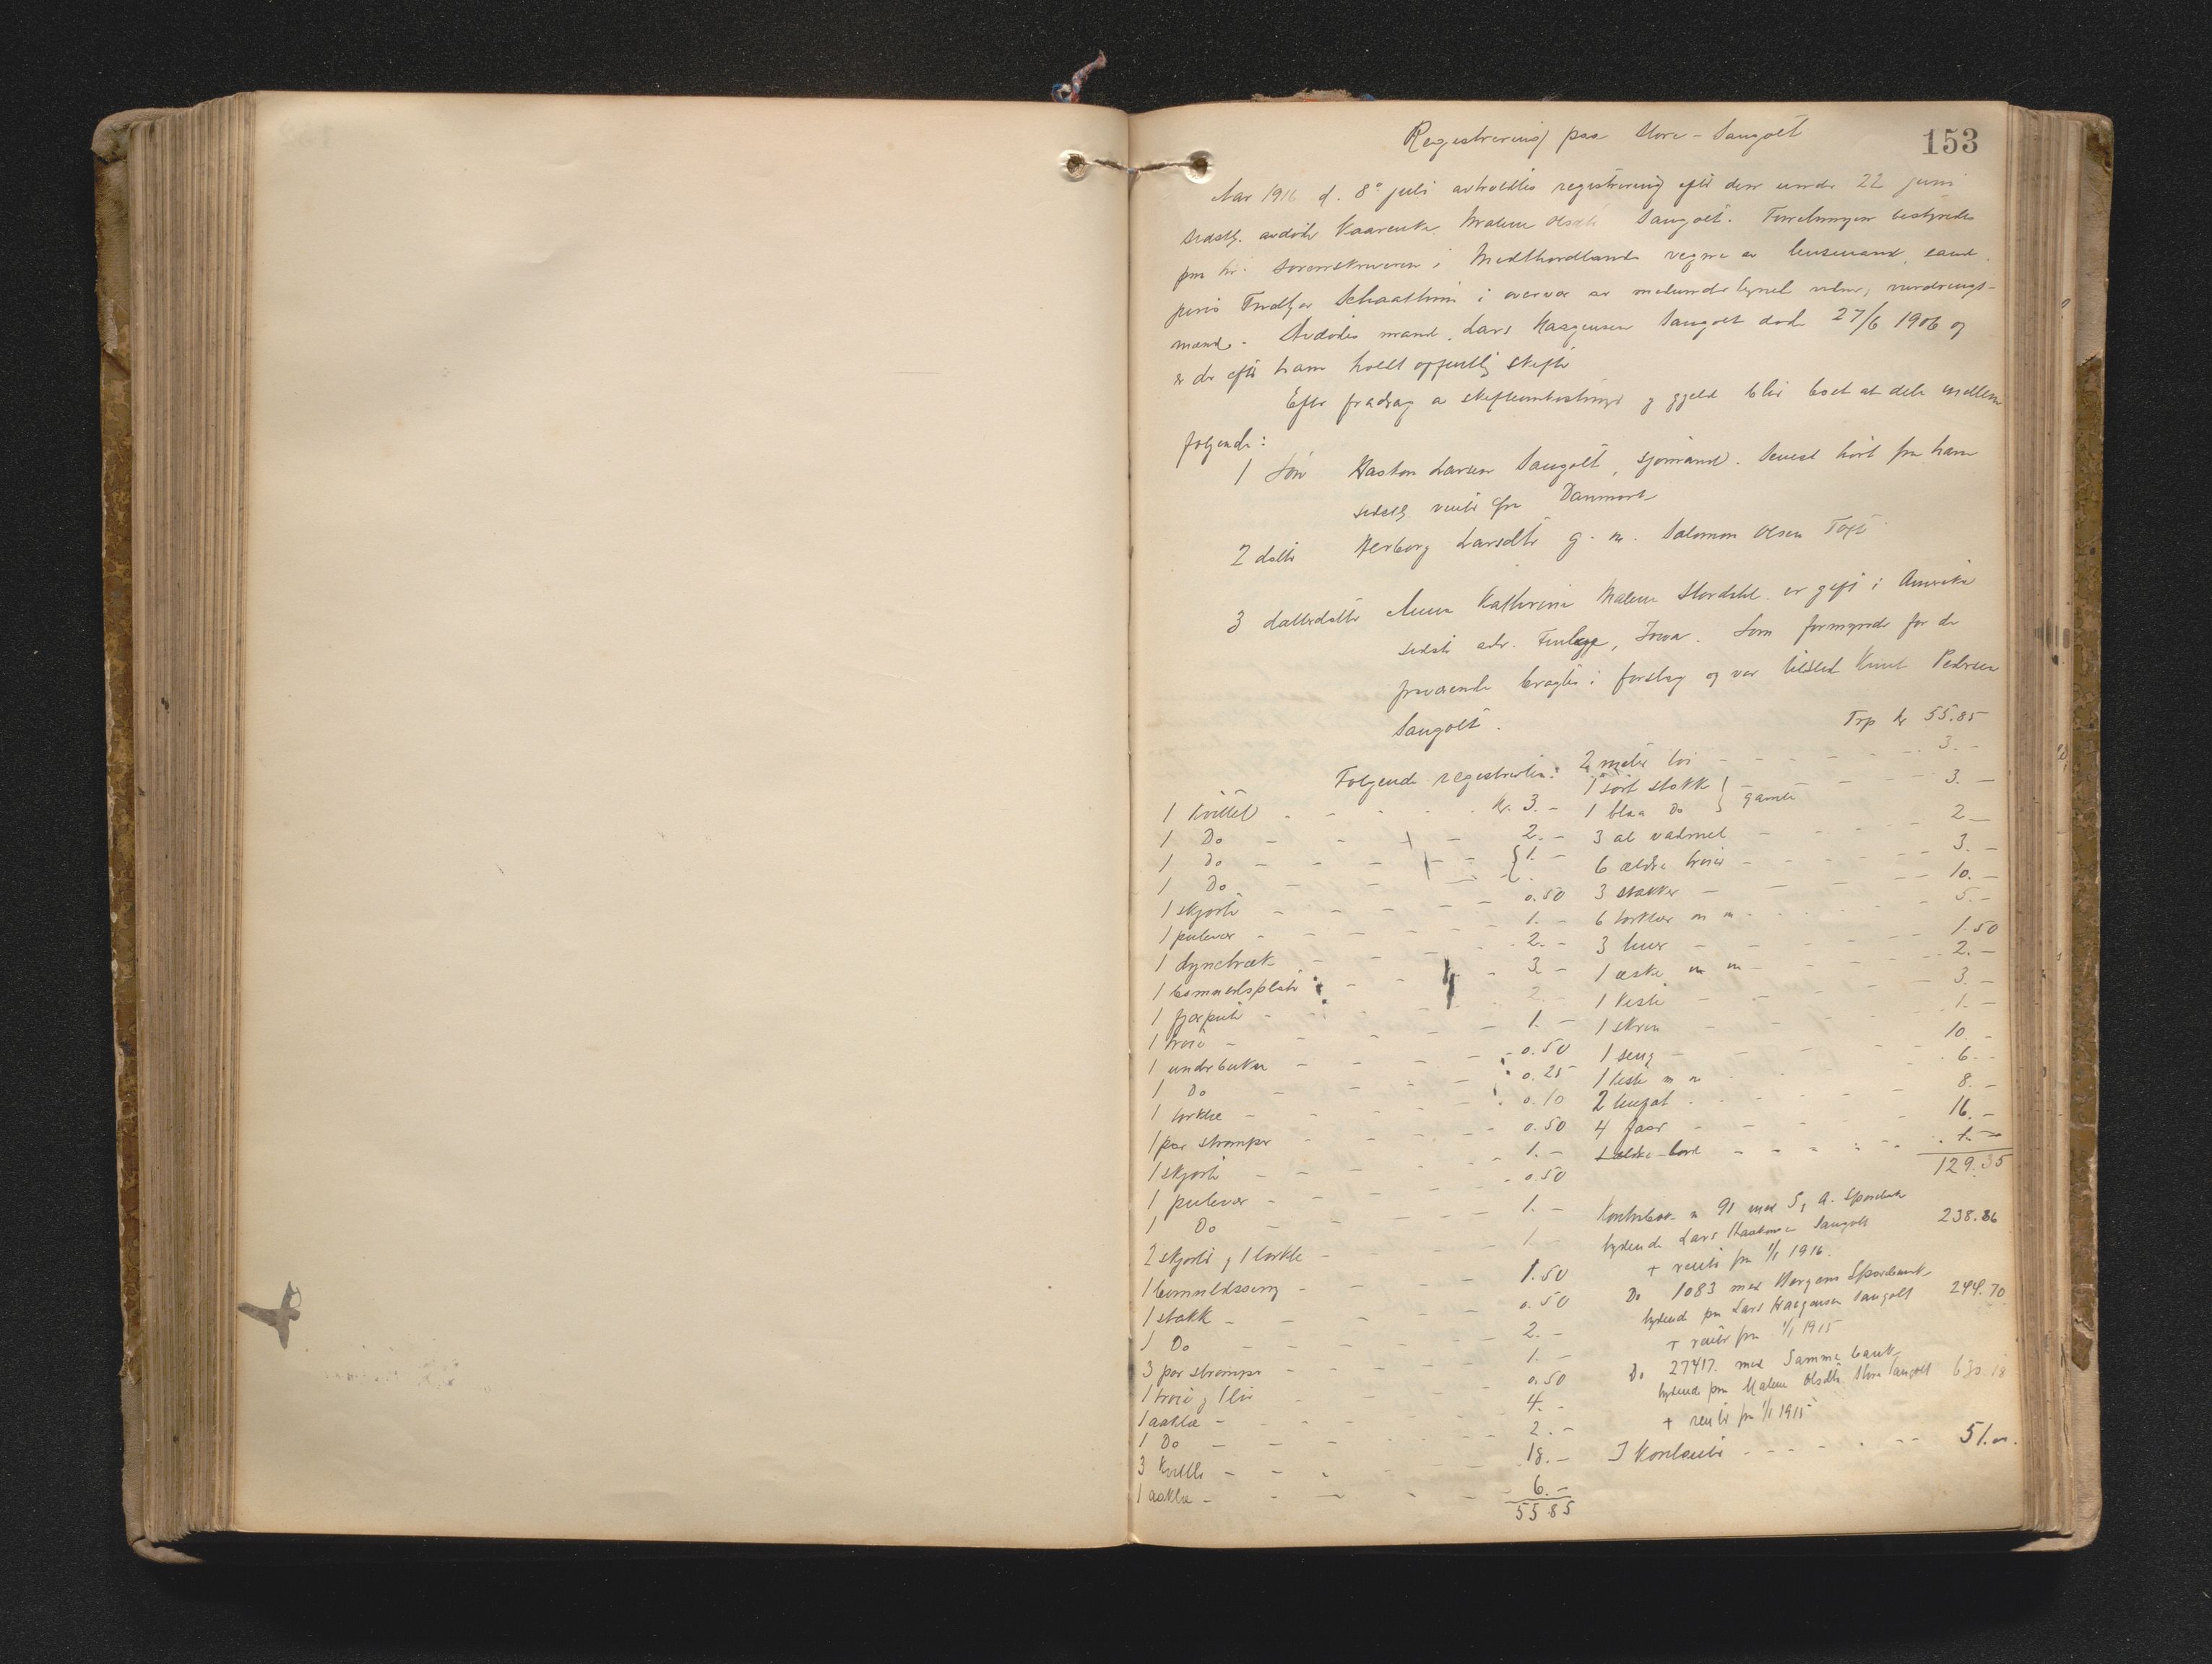 153
Registrering paa Store-Sangolt
Aar 1916 d. 8de juli avholdtes registrering efter den under 22 juni
sidstl. avdøde kaarenke Malene Olsdtr Sangolt. Forretningen bestyredes
paa hr. sorenskriveren i Midthordlands vegne av lensmand, cand.
juris Fridtjov Schaathun i overvær av medundertegnede vidner, vurderings-
mænd. Avdødes mand, Lars Haagensen Sangolt døde 27/6 1906 og
er der efter ham holdt offentlig skifte
Efter fradrag av skifteomkostninger og gjeld blir boet at dele mellem
følgende:
1 Søn Haakon Larsen Sangolt, sjømand. Senest hørt fra ham
sidstl. vinter fra Danmark
2 datter Herborg Larsdtr g. m. Salomon Olsen Tofte
3 datterdatter Anna Kathrine Malene Stordahl er gift i Amerika
sidste adr. Iowa. Som formynder for de
fraværende bragtes i forslag og var tilsted Knut Pedersen
Sangolt.
Følgende registrertes:
1 kvittel - - - kr. 3. -
1 Do - - 2. -
1 Do - - - {1. -
1 Do - -
1 skjorte - - 0.50
1 putevar - - 1. -
1 dynetræk - - 2. -
1 bomuldsplate - - 3 -
1 fjærpute - - 2. -
1 trøie - - 1. -
1 underbukse - - 0.50
1 Do - - 0.25
1 tørklæ - - 0.10
1 par strømper - - 0.50
1 skjorte - - 1. -
1 putevar - - 0.50
1 Do - - 1. -
2 skjorte, 1 tørklæ - - 1. -
1 bomuldsserg - - 1.50
1 stakk - - 0.50
1 Do - - 2. -
3 par strømper - - 1. -
1 trøie og 1 liv - - 0.50
1 aaklæ - - 4. -
1 Do - - 2. -
3 kvitler - - 18. -
1 aaklæ - - 6. -
55 85
Trp kr 55.85
2 meter tøi - - 3. -
1 sort stakk } gamle - - 3. -
1 blaa Do
3 al vadmel - - 2 -
6 ældre trøier - - 3. -
3 stakker - - 10. -
6 tørklær m m - - 5. -
3 huer - - 1.50
1 æske m m - - 2. -
1 kiste - - 3. -
1 skrin - - 1. -
1 seng - - 10. -
1 kiste m m - - 6. -
2 - - 8. -
4 faar - - 16. -
1 ældre bord - - 1. -
129.35
Kontrabok n 91 med S, A. Sparebank
lydende Lars Haakonsen Sangolt 238.86
+ renter fra 1/1 1916.
Do 1083 med Bergens Sparebank
lydende paa Lars Haagensen Sangolt 244.70
+ renter fra 1/1 1915
Do 27417. med Samme bank
lydende paa Malene Olsdtr Store Sangolt 630.18
+ renter fra 1/1 1915
I kontanter - - - 51.00.